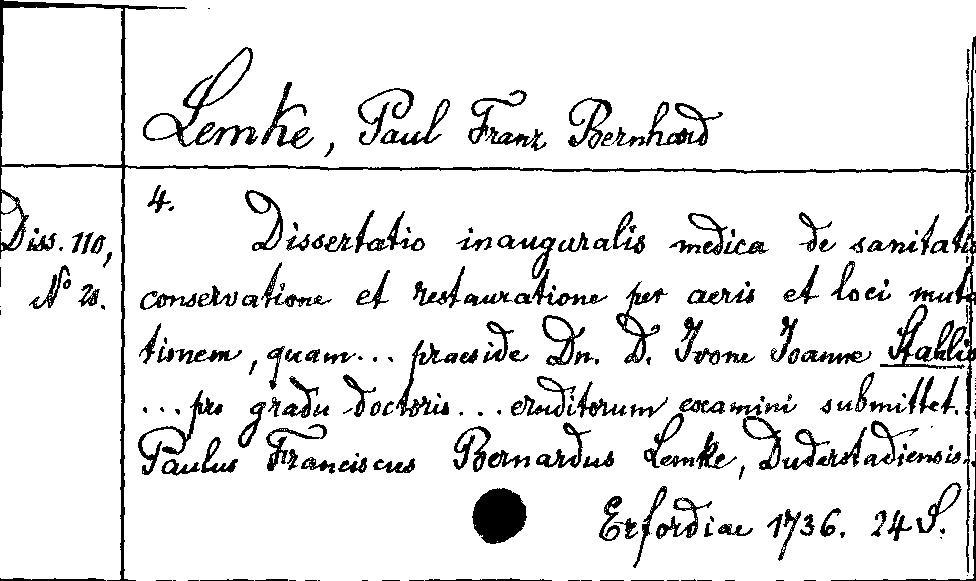 Lemke, Paul Franz Bernhard
Diss. 110,
No 20.
4.
Dissertatio inauguralis medica de sanitatis
conservatione et restauratione per aeris et loci muta
tionem, quam... praeside Dn. D. Ivone Ioanne Stahlio
... pro gradu doctoris... eruditorum examini submittet...
Paulus Franciscus Bernardus Lemke, Duderstadiensis.
Erfordiae 1736. 24 S.